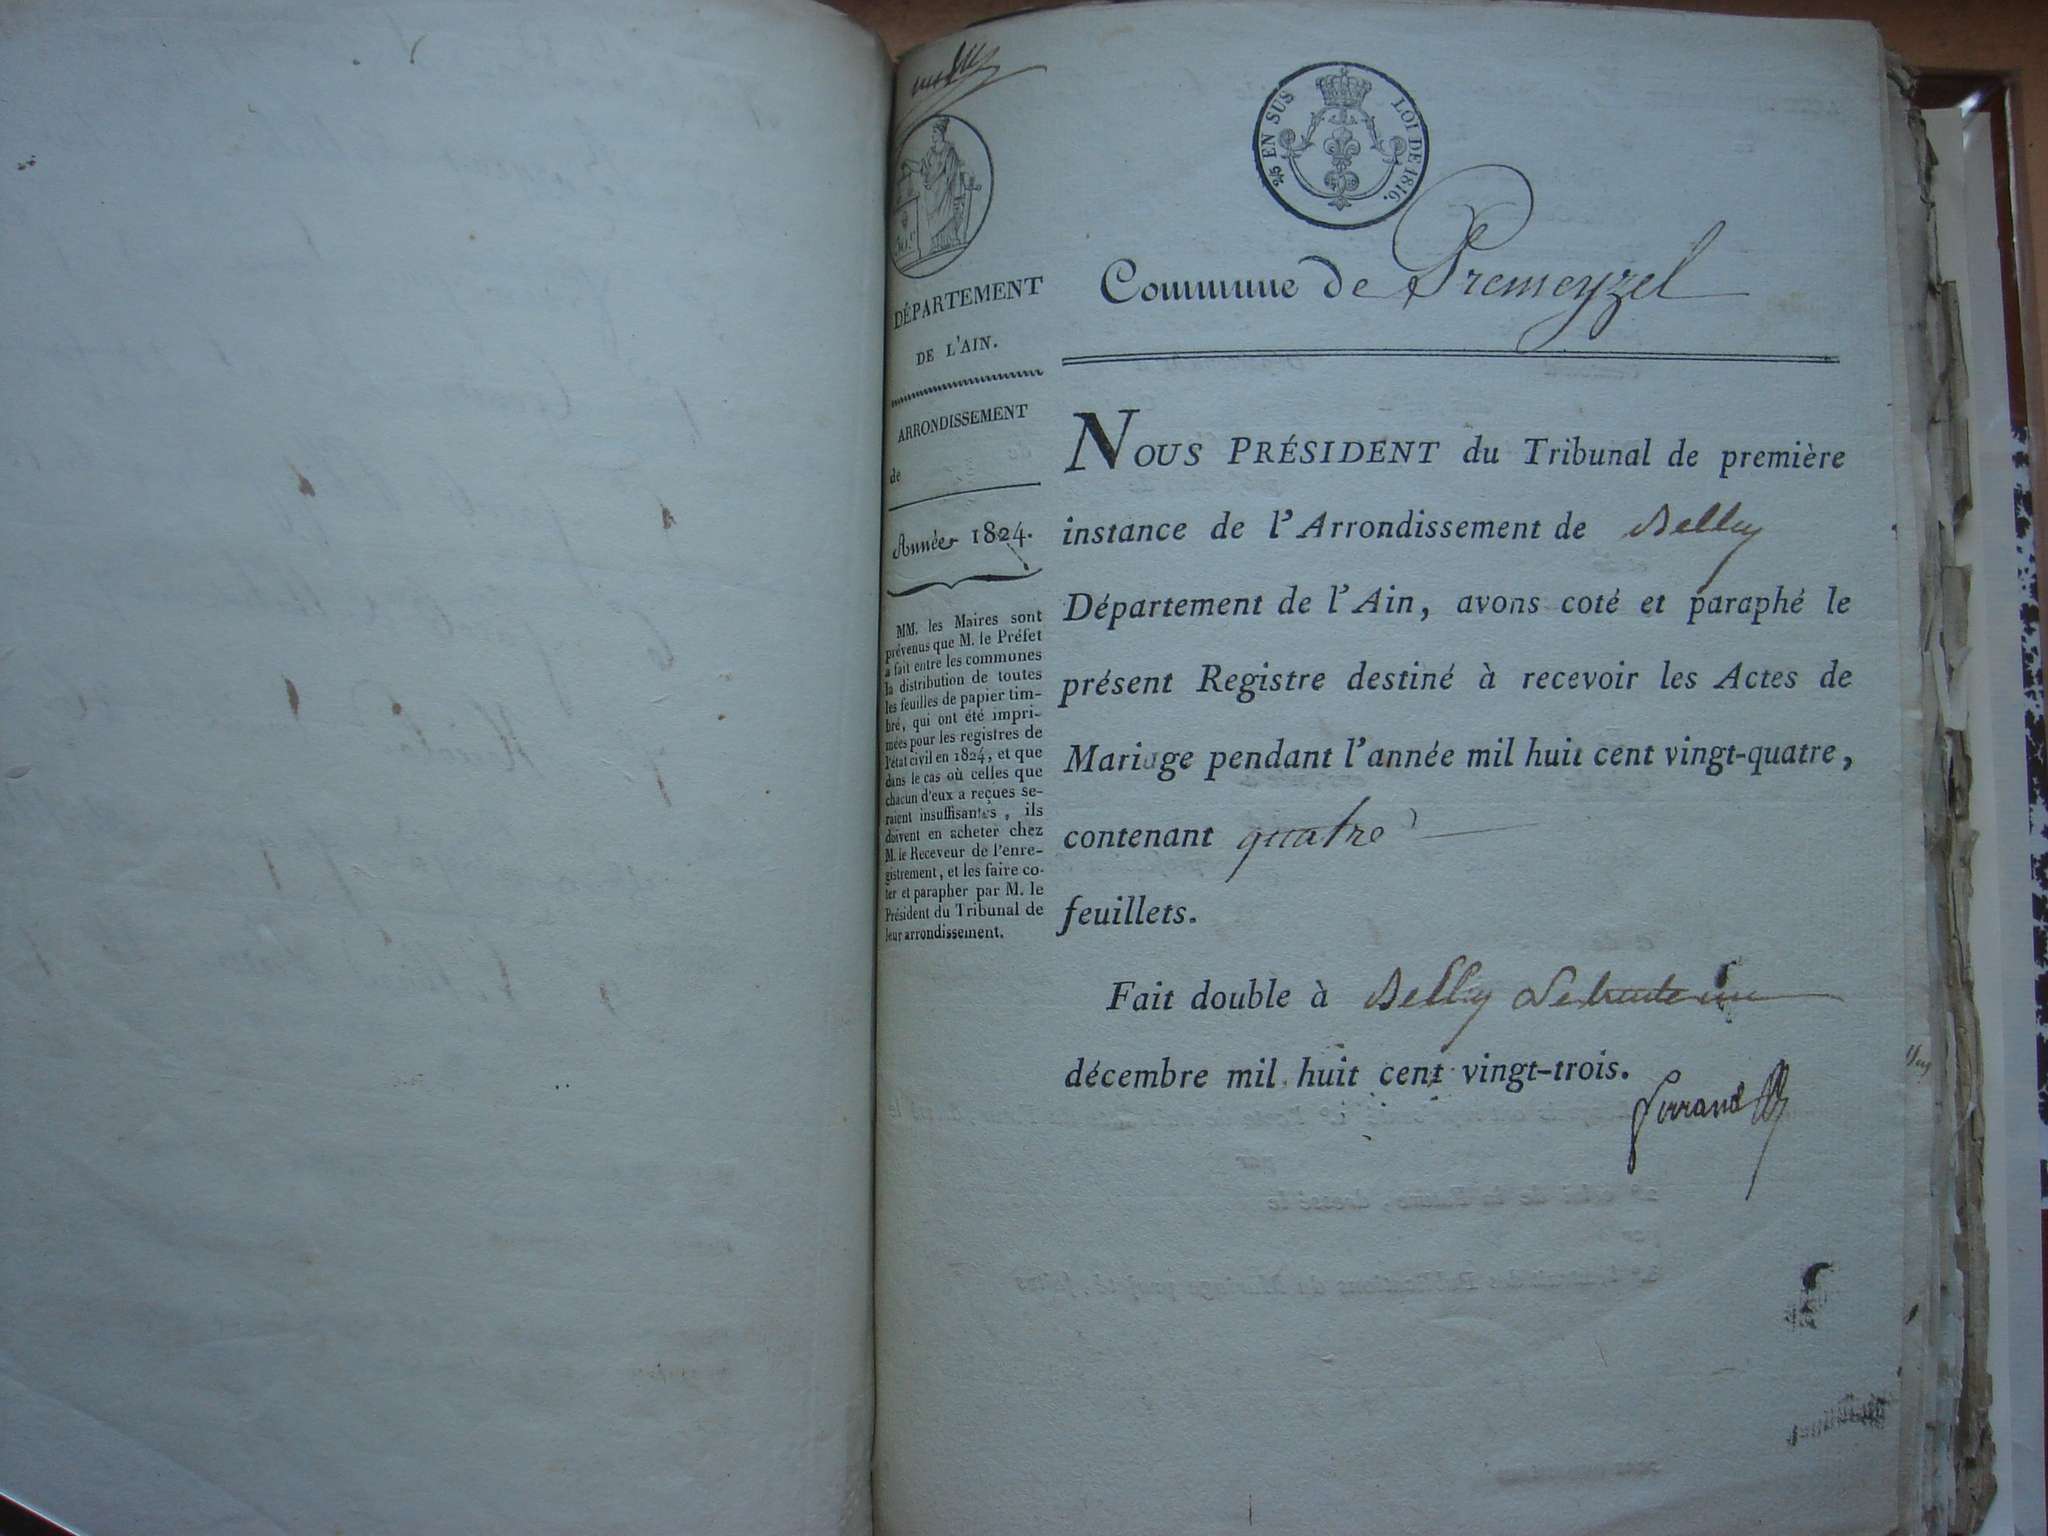 2/5 EN SUS
LOI DE 1816.
50.c
DÉPARTEMENT
DE L'AIN.
ARRONDISSEMENT
de
Année 1824.
MM. les Maires sont
prévenus que M. le Préfet
a fait entre les communes
la distribution de toutes
les feuilles de papier tim-
bré, qui ont été impri-
mées pour les registres de
l'état civil en 1824, et que
dans le cas où celles que
chacun d'eux a reçues se-
raient insuffisantes, ils
doivent en acheter chez
M. le Receveur de l'enre-
gistrement, et les faire co-
ter et parapher par M. le
Président du Tribunal de
leur arrondissement.
Commune de Premeyzel
NOUS PRÉSIDENT du Tribunal de première
instance de l'Arrondissement de Belley
Département de l'Ain, avons coté et paraphé le
présent Registre destiné à recevoir les Actes de
Mariage pendant l'année mil huit cent vingt-quatre,
contenant quatre
feuillets.
Fait double à Belley Le trente un
décembre mil huit cent vingt-trois.